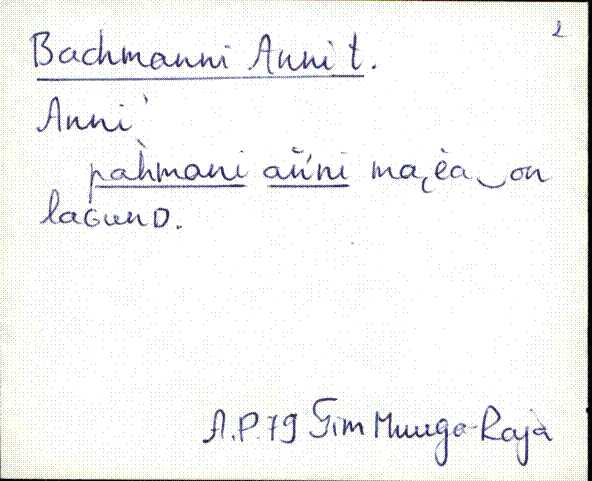 2
Bachmanni Anni t.
Anni`
pah̀mani ańni ma,èa‿on
laGunD.
A.P.79 Tim Muuga-Raja